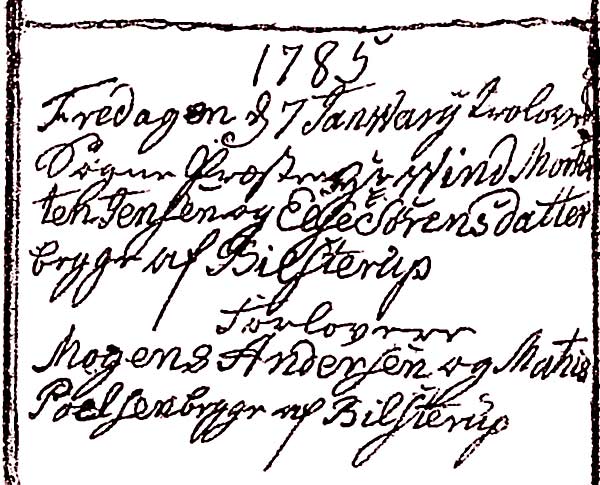 1785
Fredagen d 7 Januarij troloved
Sogne Præsten Hr Wind Mor
ten Jensen og Else Sørensdatter
begge af Bilsterup
Forlovere
Mogens Andersen og Mathis
Poelsen begge af Bilsterup